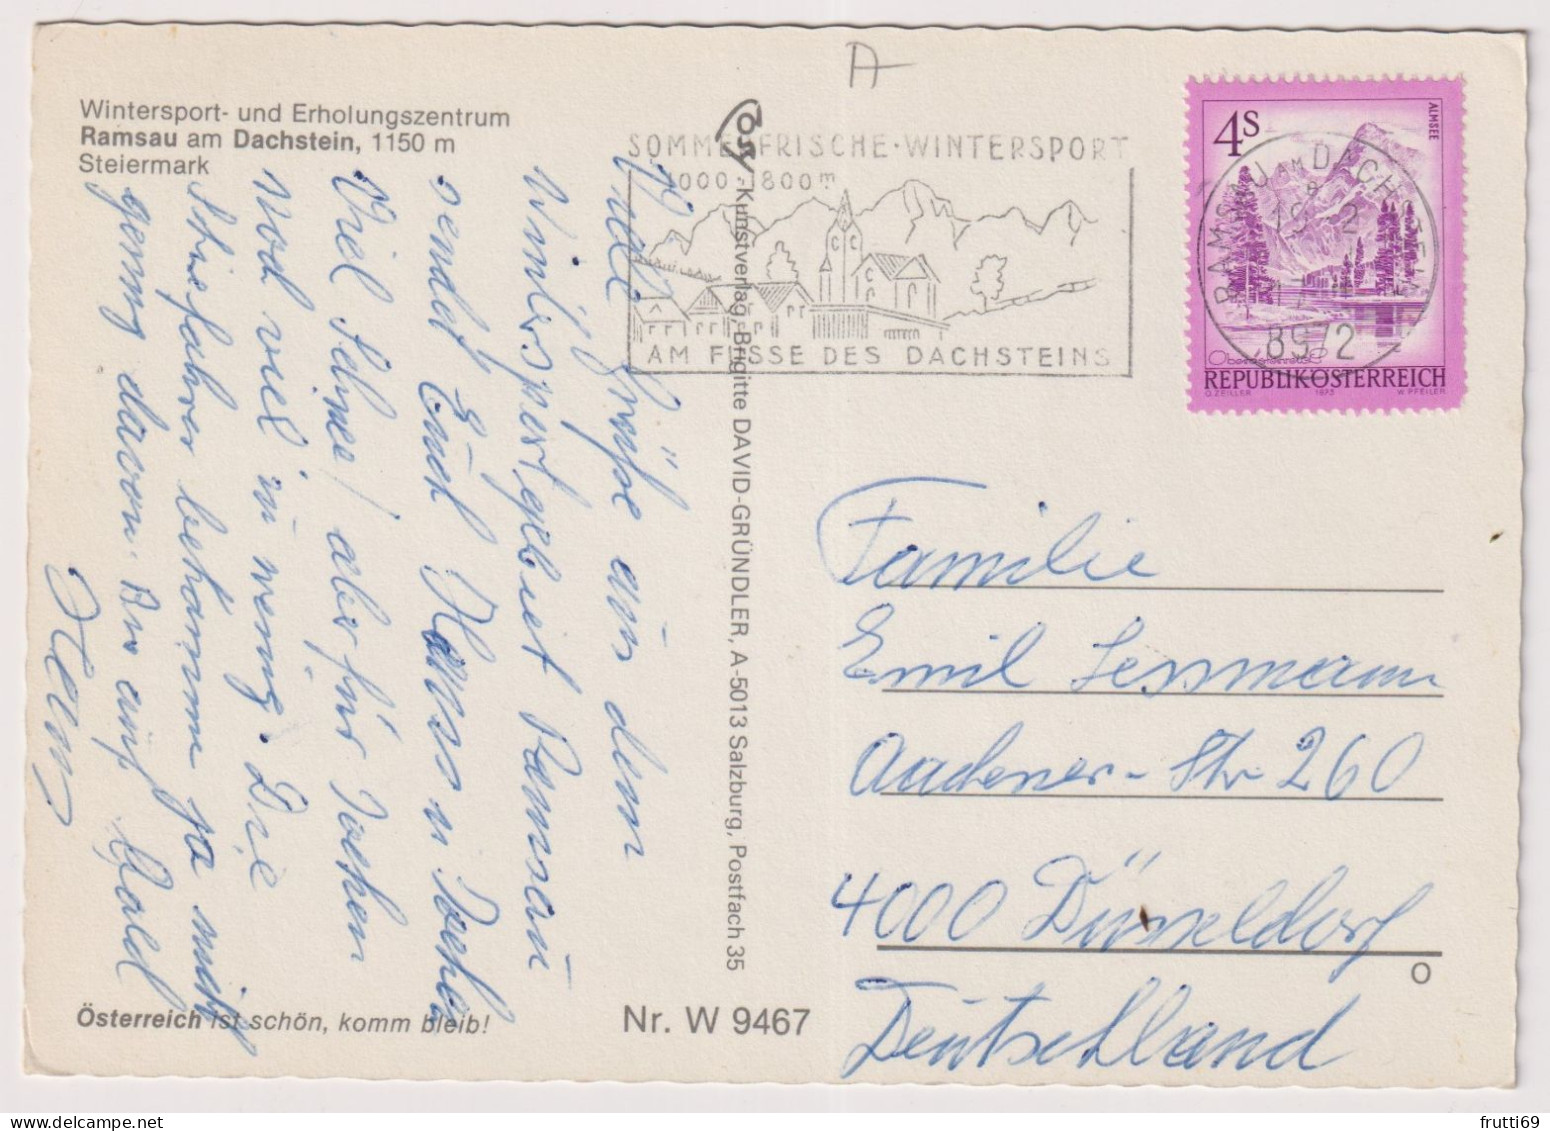 A
Wintersport- und Erholungszentrum
Ramsau am Dachstein, 1150 m
Steiermark
SOMMERFRISCHE · WINTERSPORT
1000-1800 m
AM FUSSE DES DACHSTEINS
RAMSAU AM DACHSTEIN
19. 2
8972
4S
ALMSEE
Oberösterreich
REPUBLIK ÖSTERREICH
O. ZEILLER 1973 W. PFEILER
Viele Grüße aus dem
Wintersportgebiet Ramsau
sendet Euch Hans u
Viel Schnee! aber für
und viel zu wenig. Die
Skiefahrer bekommen ja nicht
genug davon. Bis auf bald
Kunstverlag Brigitte DAVID-GRÜNDLER, A-5013 Salzburg, Postfach 35
Familie
Emil Lessmann
Aachener-Str 260
4000 Düsseldorf
Deutschland
Österreich ist schön, komm bleib!
Nr. W 9467
O
frutti69